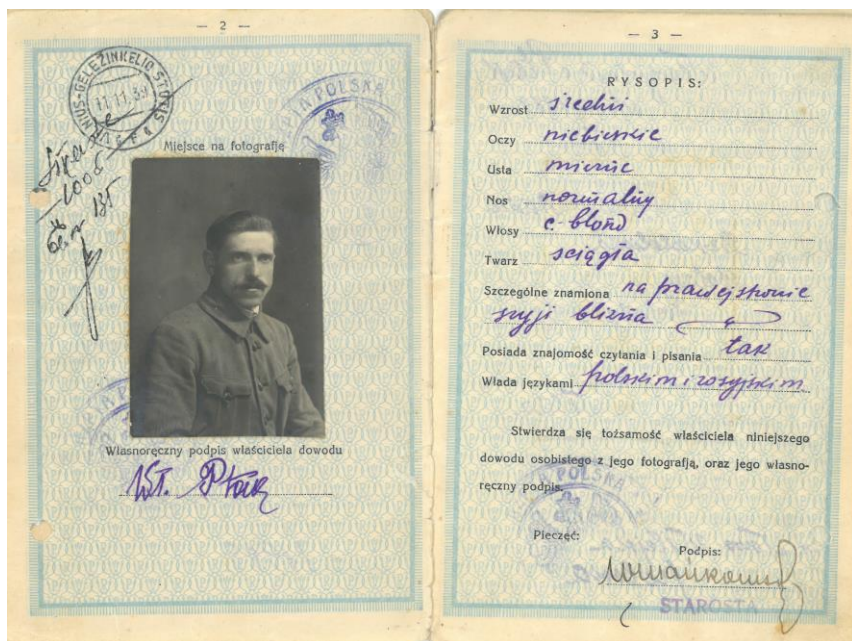 — 2 —
VILNIUS-GELEŽINKELIO STOTIS
11.11.39
1006
135
Miejsce na fotografję
Własnoręczny podpis właściciela dowodu
Wł. Ptak
— 3 —
RYSOPIS:
Wzrost średni
Oczy niebieskie
Usta mierne
Nos normalny
Włosy c. blond
Twarz ściągła
Szczególne znamiona na prawej stronie
szyji blizna
Posiada znajomość czytania i pisania tak
Włada językami polskim i rosyjskim
Stwierdza się tożsamość właściciela niniejszego
dowodu osobistego z jego fotografją, oraz jego własno-
ręczny podpis.
POLSKA
Pieczęć:
Podpis:
STAROSTA